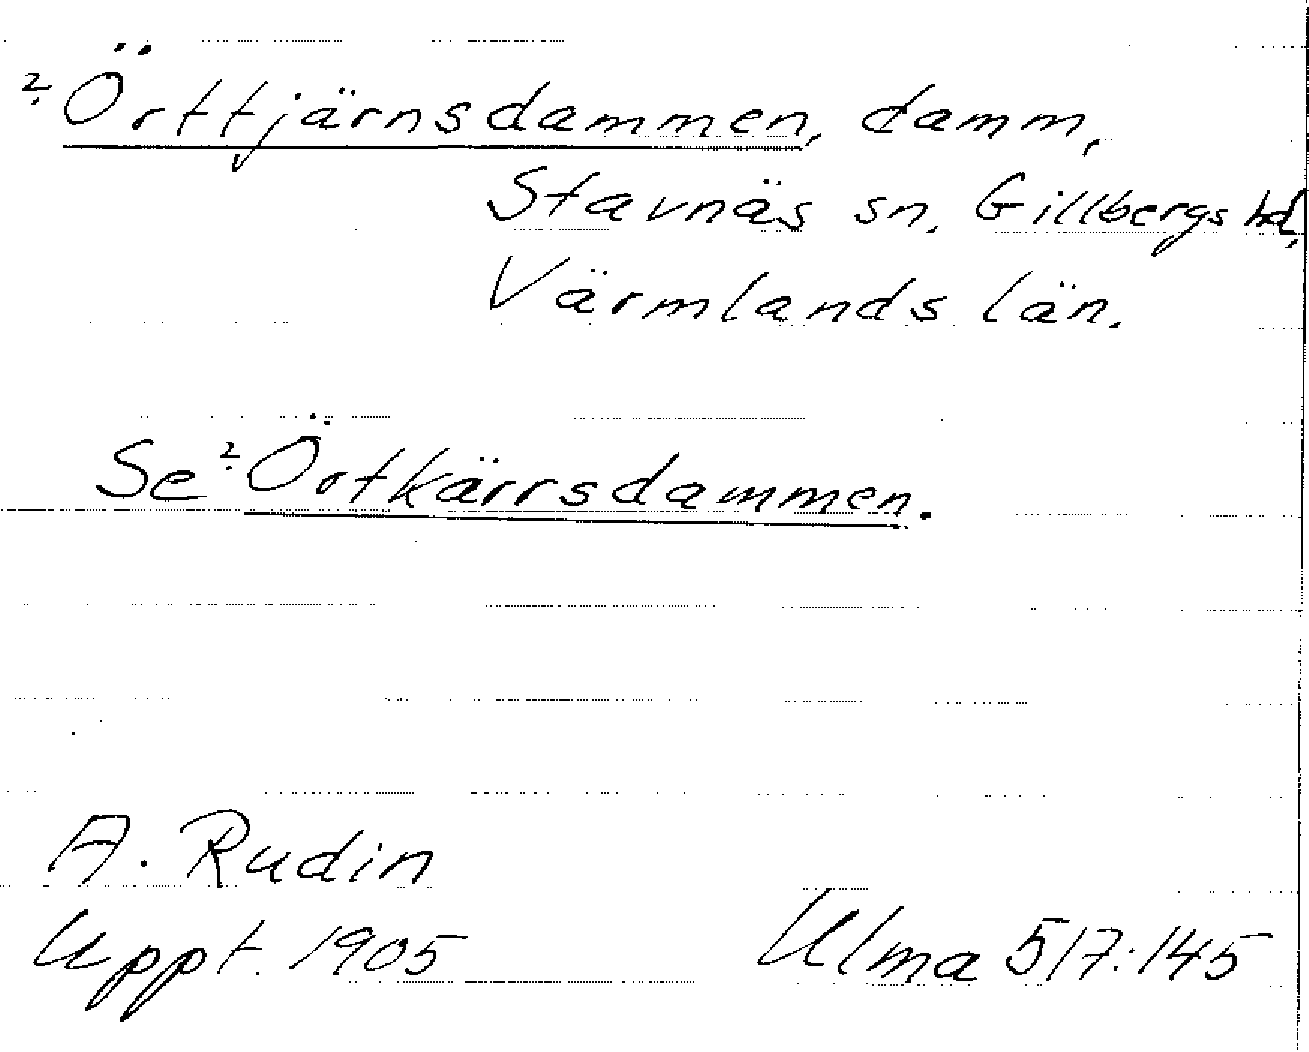 ?Örttjärnsdammen, damm,
Stavnäs sn. Gillbergs hd,
Värmlands län.
Se ?Örtkärrsdammen.
A. Rudin
Uppt. 1905 Ulma 517:145